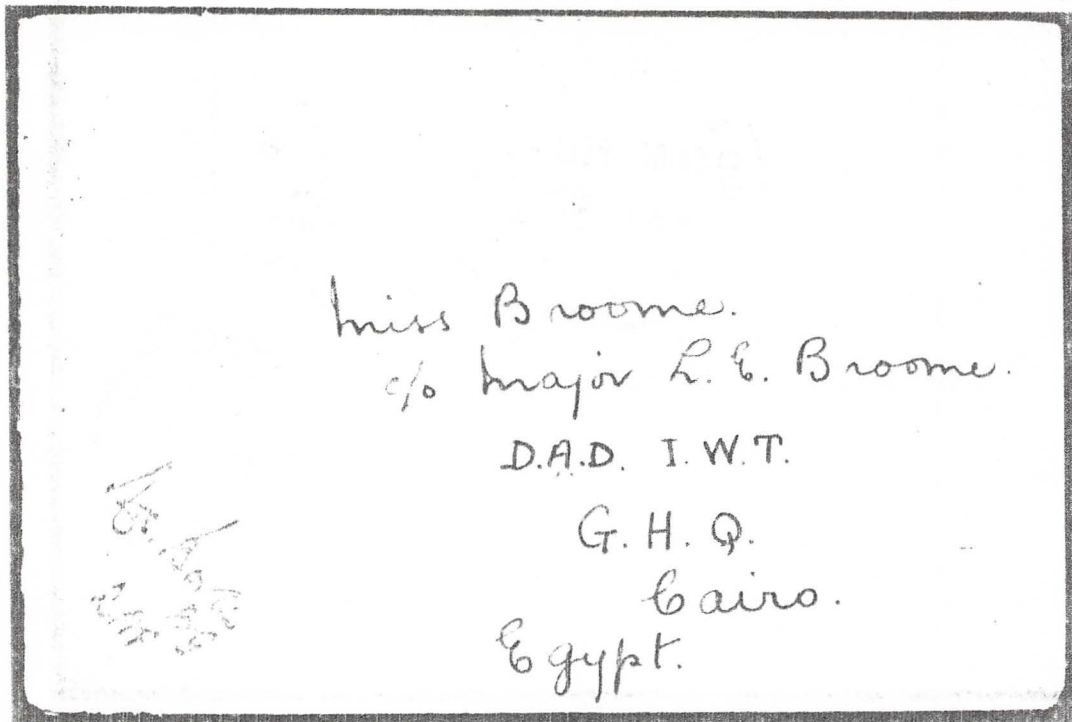 Miss Broome.
c/o Major L.E. Broome.
D.A.D. I.W.T.
G.H.Q.
Cairo.
Egypt.